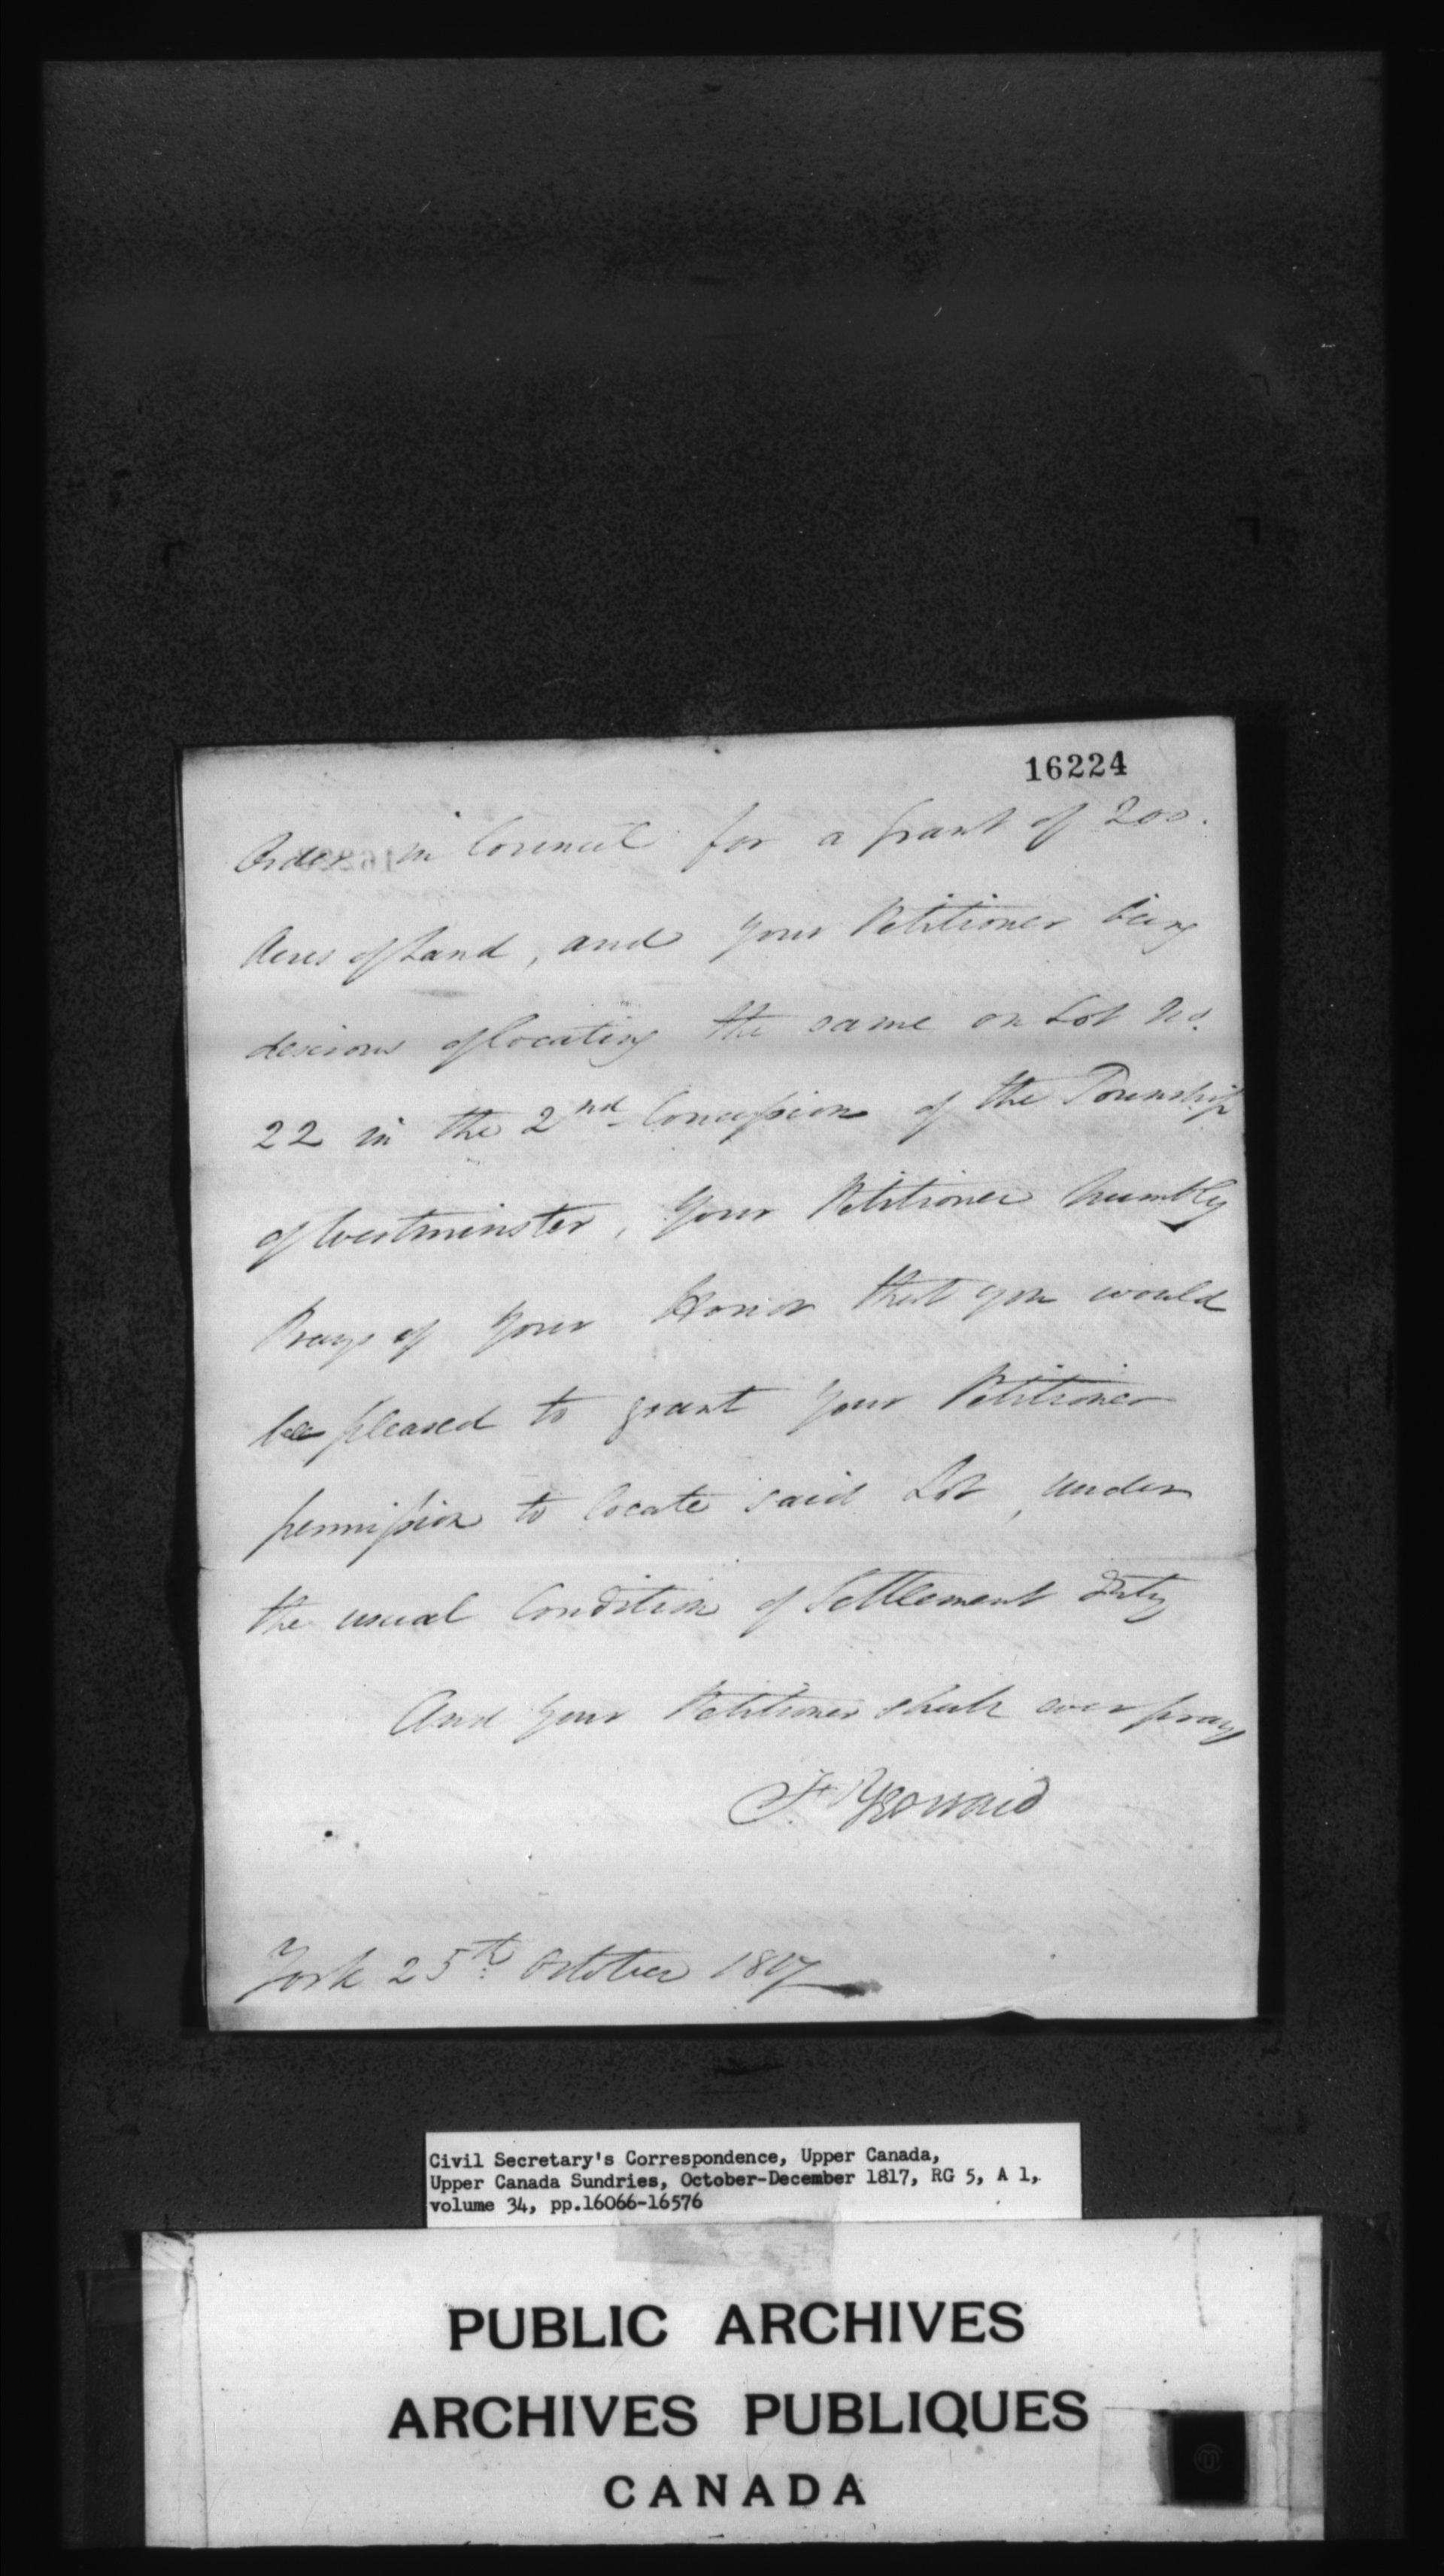 16224
Order in Council for a grant of 200.
Acres of Land, and your Petitioner being
desirous of locating the same on Lot No.
22 in the 2nd Concession of the Township
of Westminster, Your Petitioner humbly
Prays of your Honor that you would
be pleased to grant your Petitioner
permission to locate said Lot, under
the usual Condition of Settlement Duty
And your Petitioner shall ever pray
York 25th October 1817
Civil Secretary's Correspondence, Upper Canada,
Upper Canada Sundries, October-December 1817, RG 5, A 1,
volume 34, pp.16066-16576
PUBLIC ARCHIVES
ARCHIVES PUBLIQUES
CANADA